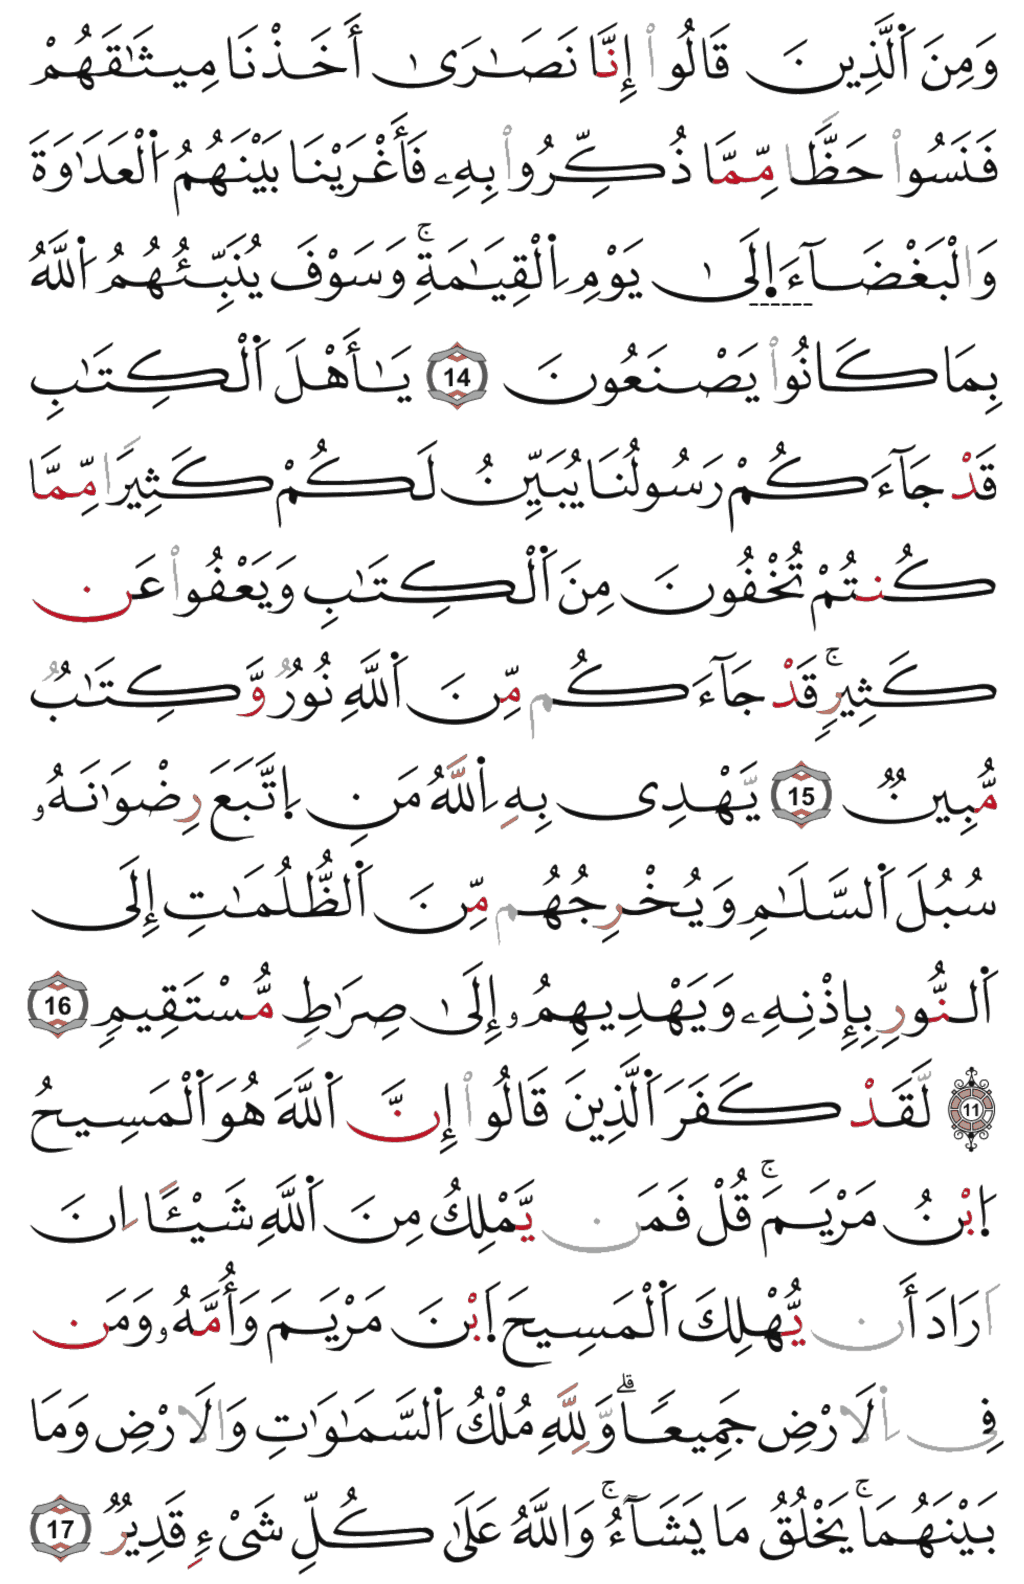 وَمِنَ اَ۬لَّذِينَ قَالُواْ إِنَّا نَصَٰرَىٰ أَخَذْنَا مِيثَٰقَهُمْ
فَنَسُواْ حَظّاً مِّمَّا ذُكِّرُواْ بِهِۦ فَأَغْرَيْنَا بَيْنَهُمُ اُ۬لْعَدَٰوَةَ
وَالْبَغْضَآءَ اِ۪لَىٰ يَوْمِ اِ۬لْقِيَٰمَةِۚ وَسَوْفَ يُنَبِّئُهُمُ اُ۬للَّهُ
بِمَا كَانُواْ يَصْنَعُونَ 14 يَٰأَهْلَ اَ۬لْكِتَٰبِ
قَدْ جَآءَكُمْ رَسُولُنَا يُبَيِّنُ لَكُمْ كَثِيراً مِّمَّا
كُنتُمْ تُخْفُونَ مِنَ اَ۬لْكِتَٰبِ وَيَعْفُواْ عَن
كَثِيرٍۚ قَدْ جَآءَكُم مِّنَ اَ۬للَّهِ نُورٌ وَّكِتَٰبٌ
مُّبِينٌ 15 يَّهْدِى بِهِ اِ۬للَّهُ مَنِ اِ۪تَّبَعَ رِضْوَٰنَهُۥ
سُبُلَ اَ۬لسَّلَٰمِ وَيُخْرِجُهُم مِّنَ اَ۬لظُّلُمَٰتِ إِلَى
اَ۬لنُّورِ بِإِذْنِهِۦ وَيَهْدِيهِمُۥ إِلَىٰ صِرَٰطٍ مُّسْتَقِيمٍ 16
11 لَّقَدْ كَفَرَ اَ۬لَّذِينَ قَالُواْ إِنَّ اَ۬للَّهَ هُوَ اَ۬لْمَسِيحُ
اُ۪بْنُ مَرْيَمَۚ قُلْ فَمَن يَّمْلِكُ مِنَ اَ۬للَّهِ شَيْـًٔا اِنَ
اَرَادَ أَن يُّهْلِكَ اَ۬لْمَسِيحَ اَ۪بْنَ مَرْيَمَ وَأُمَّهُۥ وَمَن
فِى اِ۬لَارْضِ جَمِيعاًۗ وَّلِلَّهِ مُلْكُ اُ۬لسَّمَٰوَٰتِ وَالَارْضِ وَمَا
بَيْنَهُمَاۚ يَخْلُقُ مَا يَشَآءُۚ وَاللَّهُ عَلَىٰ كُلِّ شَىْءٍ قَدِيرٌ 17